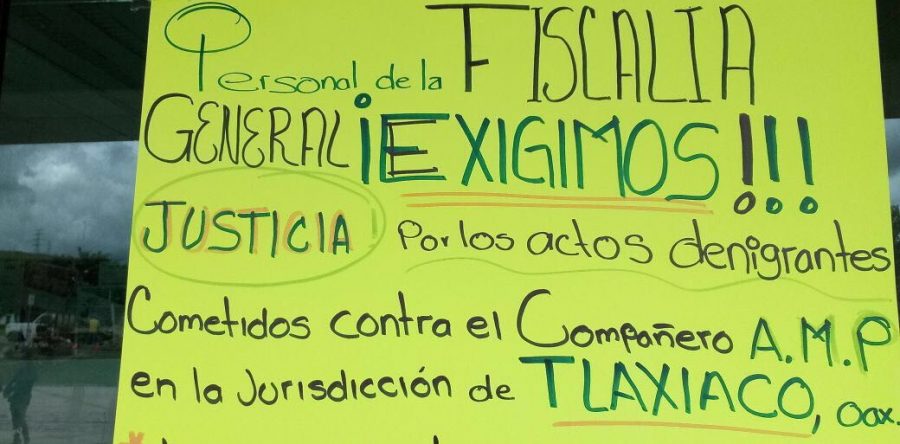 Personal de la FISCALIA
GENERAL ¡EXIGIMOS!!!
JUSTICIA Por los actos denigrantes
Cometidos contra el Compañero A.M.P
en la Jurisdicción de TLAXIACO, Oax.